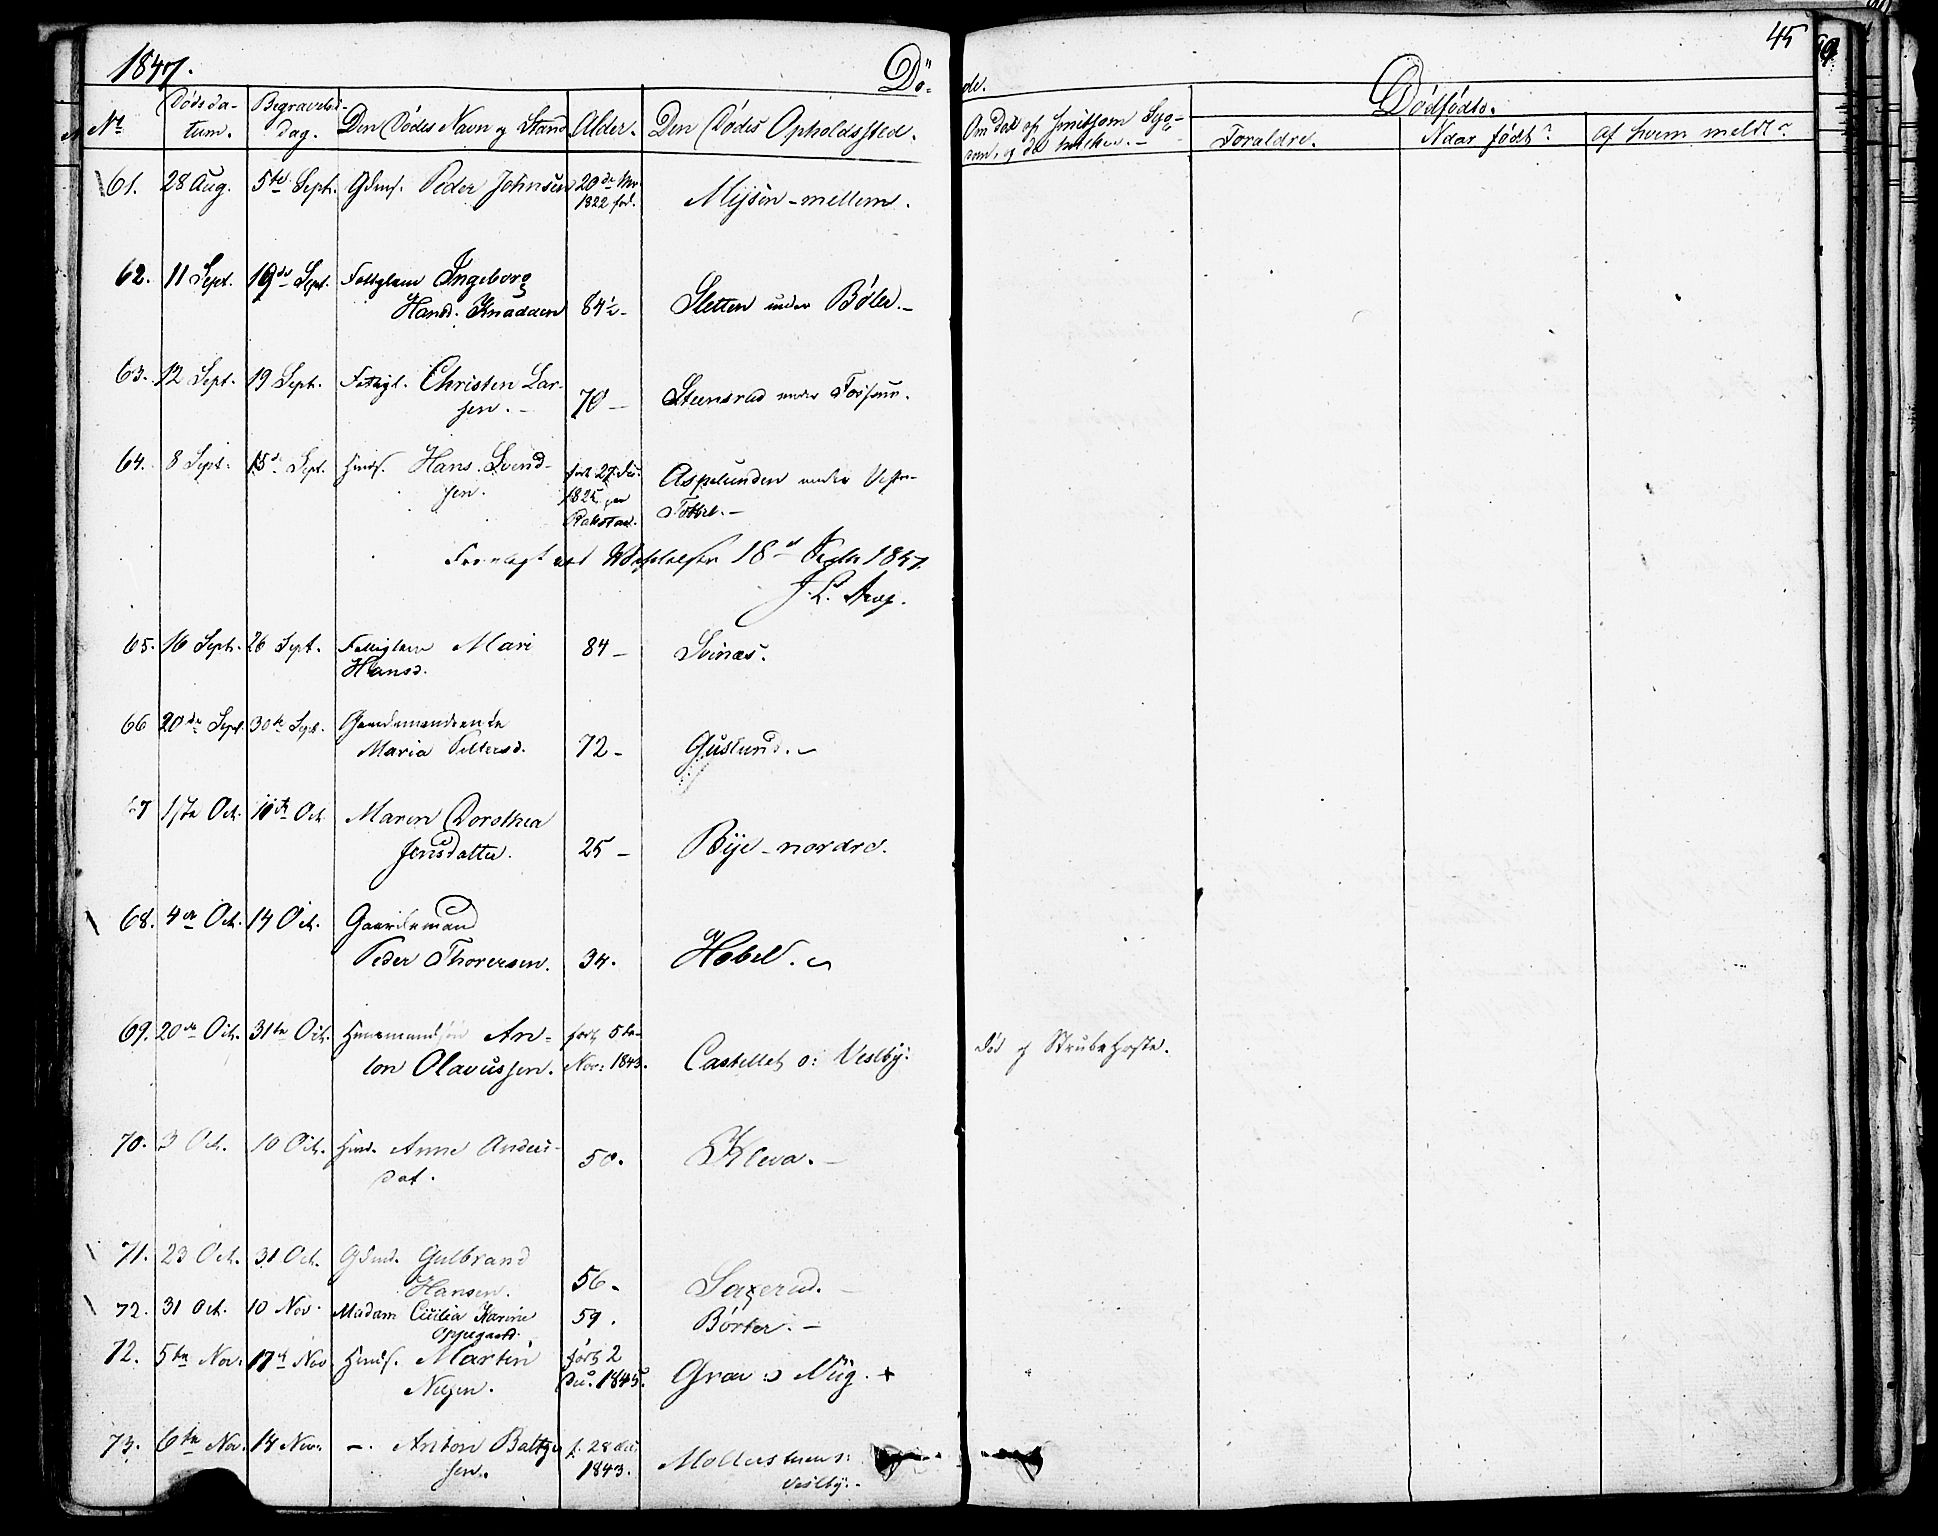 1847.
Dö-
de.
45
No
Dødsda-
tum.
Begravelses-
dag.
Den Dødes Navn og Stand
Alder.
Den Dødes Opholdssted.
Om Død af smitsom Syg-
dom, og da hvilken.-
Dødfødte.
Foraldre.
Naar født?
Af hvem meldt?
61. 28 Aug. 5te Sept. Gdms. Peder Johnsen 20de
1822 fød. Mijsen-mellem.
62. 11 Sept. 19de Sept. Fattiglem Ingeborg
Hansd. Knadden 84½- Sletten under Böler.-
63. 12 Sept. 19 Sept. Fattigl. Christen Lar-
sen.- 70- Steensrud under Fossum.
64. 8 Sept. 15de Sept. Hmds. Hans Svend-
sen. født 27 Dec.
1825 paa
Rakstad. Aspelunden under Vestre-
Tøttel.-
Fremlagt ved Visitatsen 18de Septbr 1847.
J. L. Arup.
65. 16 Septr. 26 Sept. Fattiglem Mari
Hansd. 84- Svinæs.
66 20de Sept. 30te Sept. Gaardmandsenke
Maria Pettersd. 72- Guslund.-
67 1ste Oct. 10de Oct. Maren Dorothea
Jensdatter. 25- Bije-nordre.
68. 4de Oct. 14 Oct. Gaardmand
Peder Thoresen. 34. Hobel.
69. 20de Oct. 31te Oct. Huusmandssön An-
ton Olavussen. født 5te
Nov: 1843. Castellet o: Vestby. død af Strubehoste.
70. 3 Oct. 10 Oct. Hmd. Anne Anders-
dat. 50. Kleva.-
71. 23 Oct. 31 Oct. Gdmd. Gulbrand
Hansen. 56- Saxerud.-
72. 31 Oct. 10 Nov. Madam Cicilia Karine
Oppegaard. 59. Börter.-
72. 5te Nov. 17de Nov Hmds. Martin
Nilsen. født 2
Dec. 1845. Grav : Nüg. +
73. 6te Nov. 14 Nov. -. Anton Baltzer-
sen. f. 28 Dec.
1843. Mollersteens:
Vestby.-